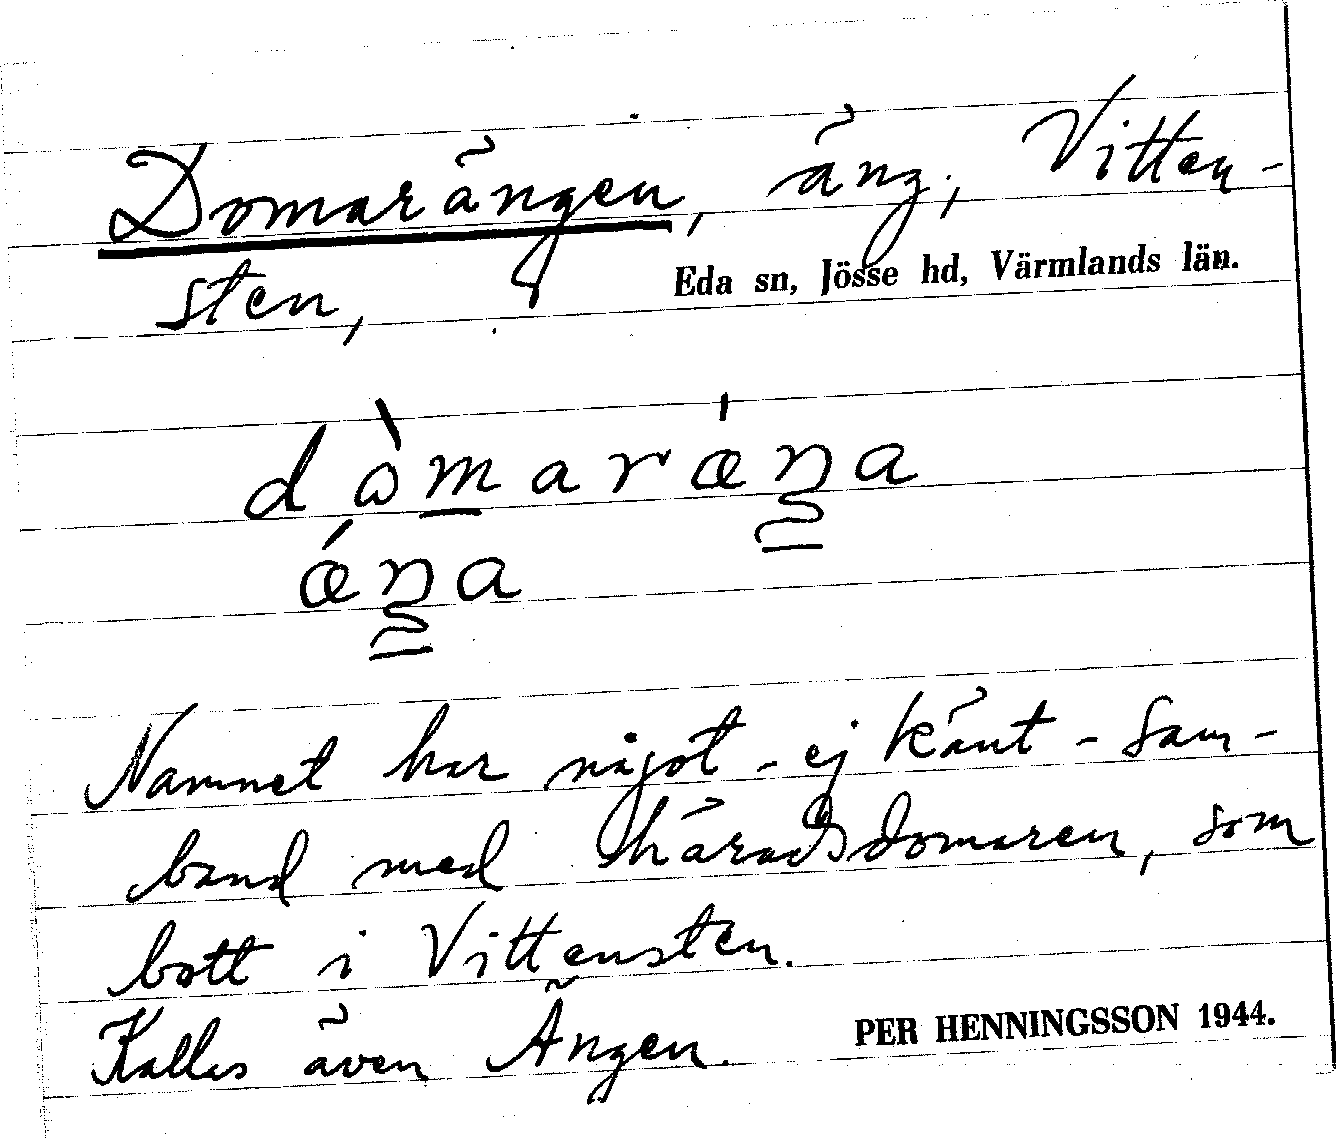 Domarängen, äng, Vitten-
sten,
Eda sn, Jösse hd, Värmlands län.
dòmaráŋa
ǽŋa
Namnet har något - ej känt - sam-
band med häradsdomaren, som
bott i Vittensten.
Kallas även Ängen.
PER HENNINGSSON 1944.